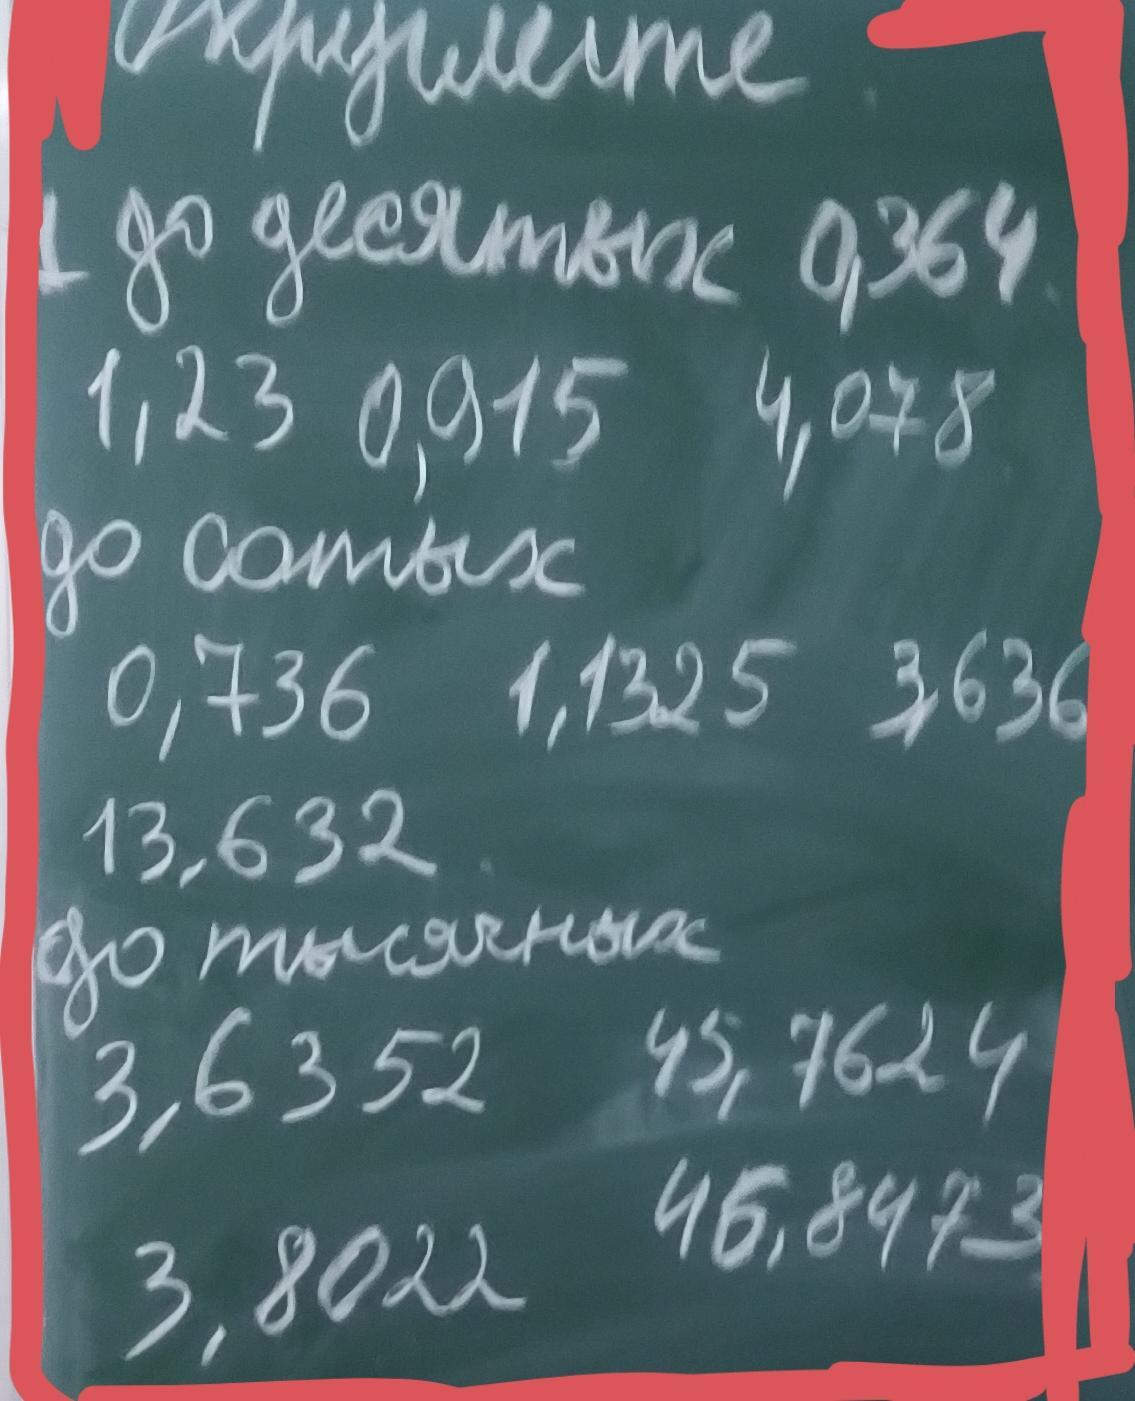 Округлите
1 до десятых 0,364
1,23 0,915 4,078
до сотых
0,736 1,1325 3,636
13,632
до тысячных
3,6352 45,7624
46,8473
3,8022